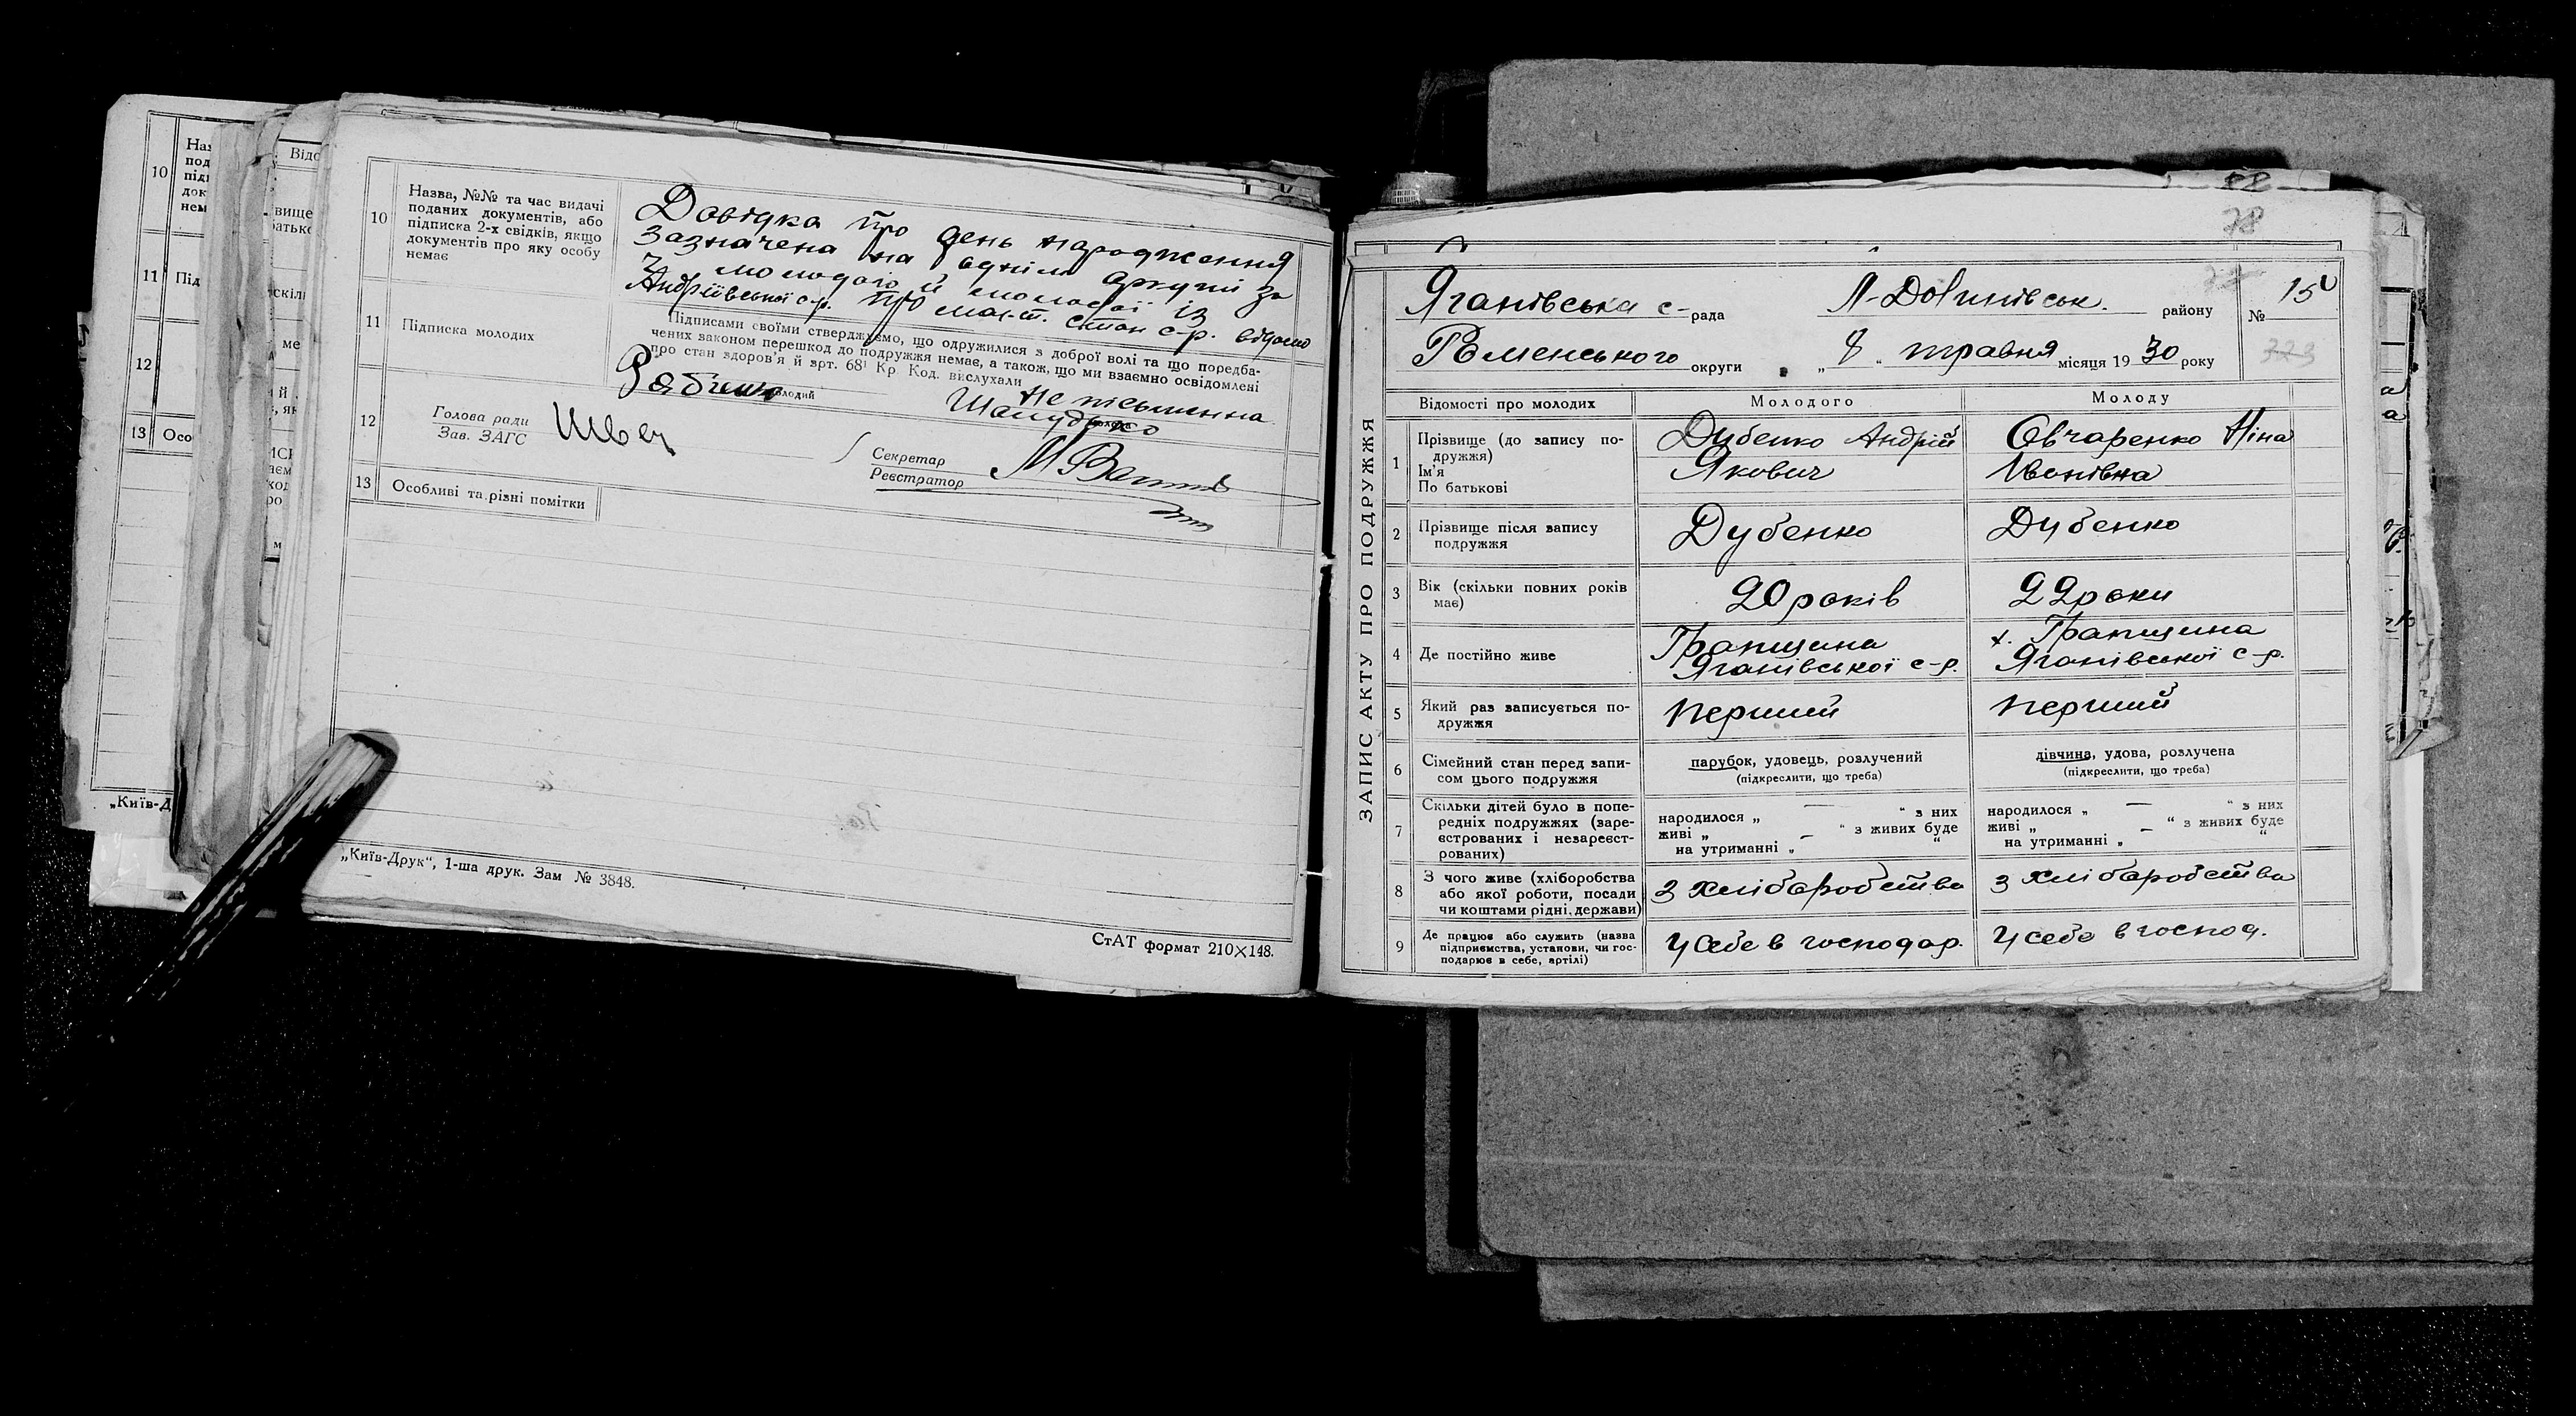 10
Назва, №№ та час видачі
поданих документів, або
підписка 2-х свідків, якщо
документів про яку особу
немає
Довідка про день народження
зазначена на однім аркуші за
молодого й молодої із
Андріївської с-р. про май-т. стан с-р. відомо
11
Підписка молодих
Підписами своїми стверджуємо, що одружилися з доброї волі та що передба-
чених законом перешкод до подружжя немає, а також, що ми взаємно освідомлені
про стан здоров'я й арт. 68¹ Кр. Код. вислухали
Рябченко
Не письменна
Шамудько
12
Голова ради
Зав. ЗАГС
Швец
Секретар
Реєстратор
13
Особливі та різні помітки
„Київ-Друк“, 1-ша друк. Зам № 3848.
СтАТ формат 210×148.
10
11
Під
12
13
Осо
„Київ-Д
78
ЗАПИС АКТУ ПРО ПОДРУЖЖЯ
Яганівська с-рада
Л-Долинівськ. району
№ 15
Роменського округи
„8“ травня місяця 1930 року
323
Відомості про молодих
Молодого
Молоду
1
Прізвище (до запису по-
дружжя)
Ім'я
По батькові
Дубенко Андрій
Якович
Овчаренко Ніна
Іванівна
2
Прізвище після запису
подружжя
Дубенко
Дубенко
3
Вік (скільки повних років
має)
20 років
22 роки
4
Де постійно живе
Гранщина
Яганівської с-р.
х. Гранщина
Яганівської с-р.
5
Який раз записується по-
дружжя
перший
перший
6
Сімейний стан перед запи-
сом цього подружжя
парубок, удовець, розлучений
(підкреслити, що треба)
дівчина, удова, розлучена
(підкреслити, що треба)
7
Скільки дітей було в попе-
редніх подружжях (заре-
єстрованих і незареєст-
рованих)
народилося „ — “ з них
живі „ — “ з живих буде
на утриманні „ “
народилося „ — “ з них
живі „ — “ з живих буде
на утриманні „ “
8
З чого живе (хліборобства
або якої роботи, посади
чи коштами рідні, держави)
з хліборобства
з хліборобства
9
Де працює або служить (назва
підприємства, установи, чи гос-
подарює в себе, артілі)
у себе в господар.
у себе в господ.